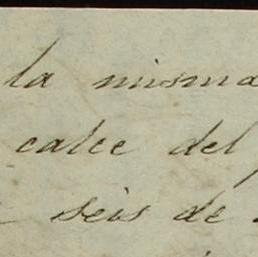 la misma
calce del
seis de